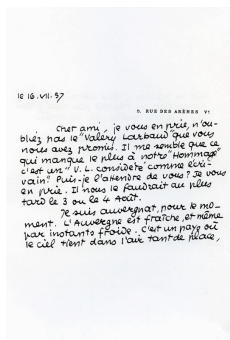 le 16.VII.57
9, RUE DES ARÈNES Ve
Cher ami, je vous en prie, n'ou-
bliez pas le "Valery Larbaud" que vous
nous avez promis. Il me semble que ce
qui manque le plus à notre "Hommage"
c'est un "V. L. considéré comme écri-
vain". Puis-je l'attendre de vous? Je vous
en prie. Il nous le faudrait au plus
tard le 3 ou le 4 Août.
Je suis auvergnat, pour le mo-
ment. L'Auvergne est fraîche, et même
par instants froide. C'est un pays où
le ciel tient dans l'air tant de place,